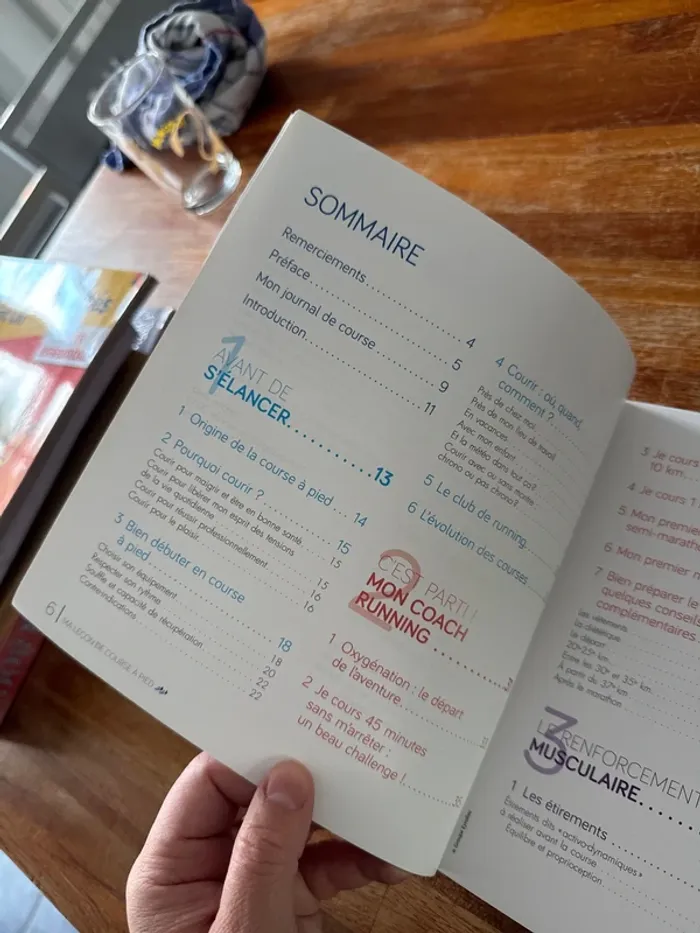 SOMMAIRE
Remerciements 4
Préface 5
Mon journal de course 9
Introduction 11
1
AVANT DE
S'ÉLANCER 13
1 Origine de la course à pied 14
2 Pourquoi courir ? 15
Courir pour maigrir et être en bonne santé 15
Courir pour libérer mon esprit des tensions
de la vie quotidienne 15
Courir pour réussir professionnellement 16
Courir pour le plaisir 16
3 Bien débuter en course
à pied 18
Choisir son équipement 18
Respecter son rythme 20
Souffle et capacité de récupération 22
Contre-indications 22
6 | MA LEÇON DE COURSE À PIED
4 Courir : où, quand,
comment ?
Près de chez moi
Près de mon lieu de travail
En vacances
Avec mon enfant
Et la météo dans tout ça ?
Courir avec ou sans montre
chrono ou pas chrono ?
5 Le club de running
6 L'évolution des courses
2
C'EST PARTI !
MON COACH
RUNNING
1 Oxygénation : le départ
de l'aventure
2 Je cours 45 minutes
sans m'arrêter :
un beau challenge !
3 Je cours
10 km
4 Je cours
5 Mon premier
semi-marath
6 Mon premier
7 Bien préparer
quelques conseils
complémentaires
Les vêtements
La diététique
Le départ
20e-25e km
Entre les 30e et 35e km
À partir du 37e km
Après le marathon
3
LE RENFORCEMENT
MUSCULAIRE
1 Les étirements
Étirements dits « activo-dynamiques »
à réaliser avant la course
Équilibre et proprioception